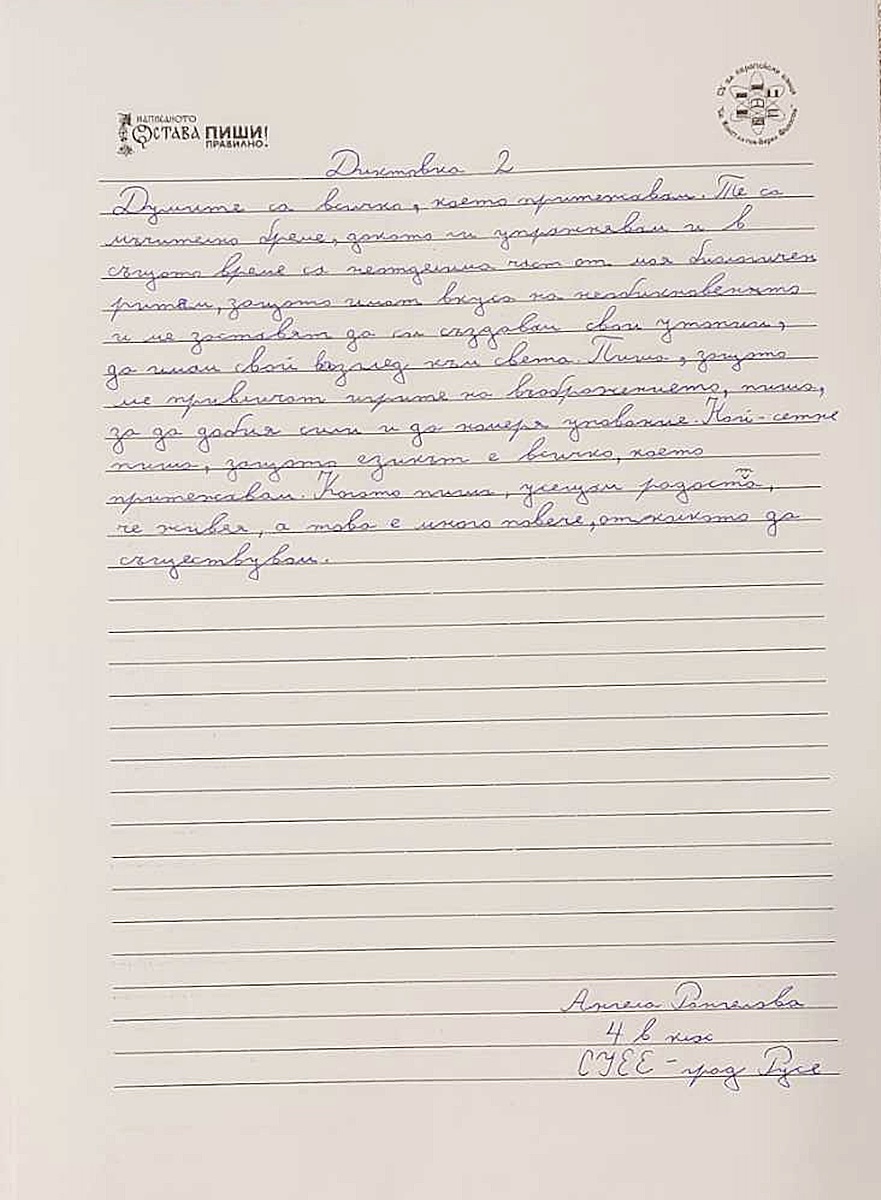 НАПИСАНОТО
ОСТАВА ПИШИ!
ПРАВИЛНО!
СУ за европейски езици
"Св. Константин-Кирил Философ"
Диктовка 2
Думите са всичко, което притежавам. Те са
мъчително бреме, докато ги упражнявам и в
същото време са неотделима част от моя биологичен
ритъм, защото имат вкуса на необикновеното
и ме заставят да си създавам свои утопии,
да имам свой възглед към света. Пиша, защото
ме привличат игрите на въображението, пиша,
за да добия сили и да намеря упование. Най-сетне
пиша, защото езикът е всичко, което
притежавам. Когато пиша, усещам радостта,
че живея, а това е много повече, отколкото да
съществувам.
Ангела Рангелова
4 в клас
СУЕЕ - град Русе